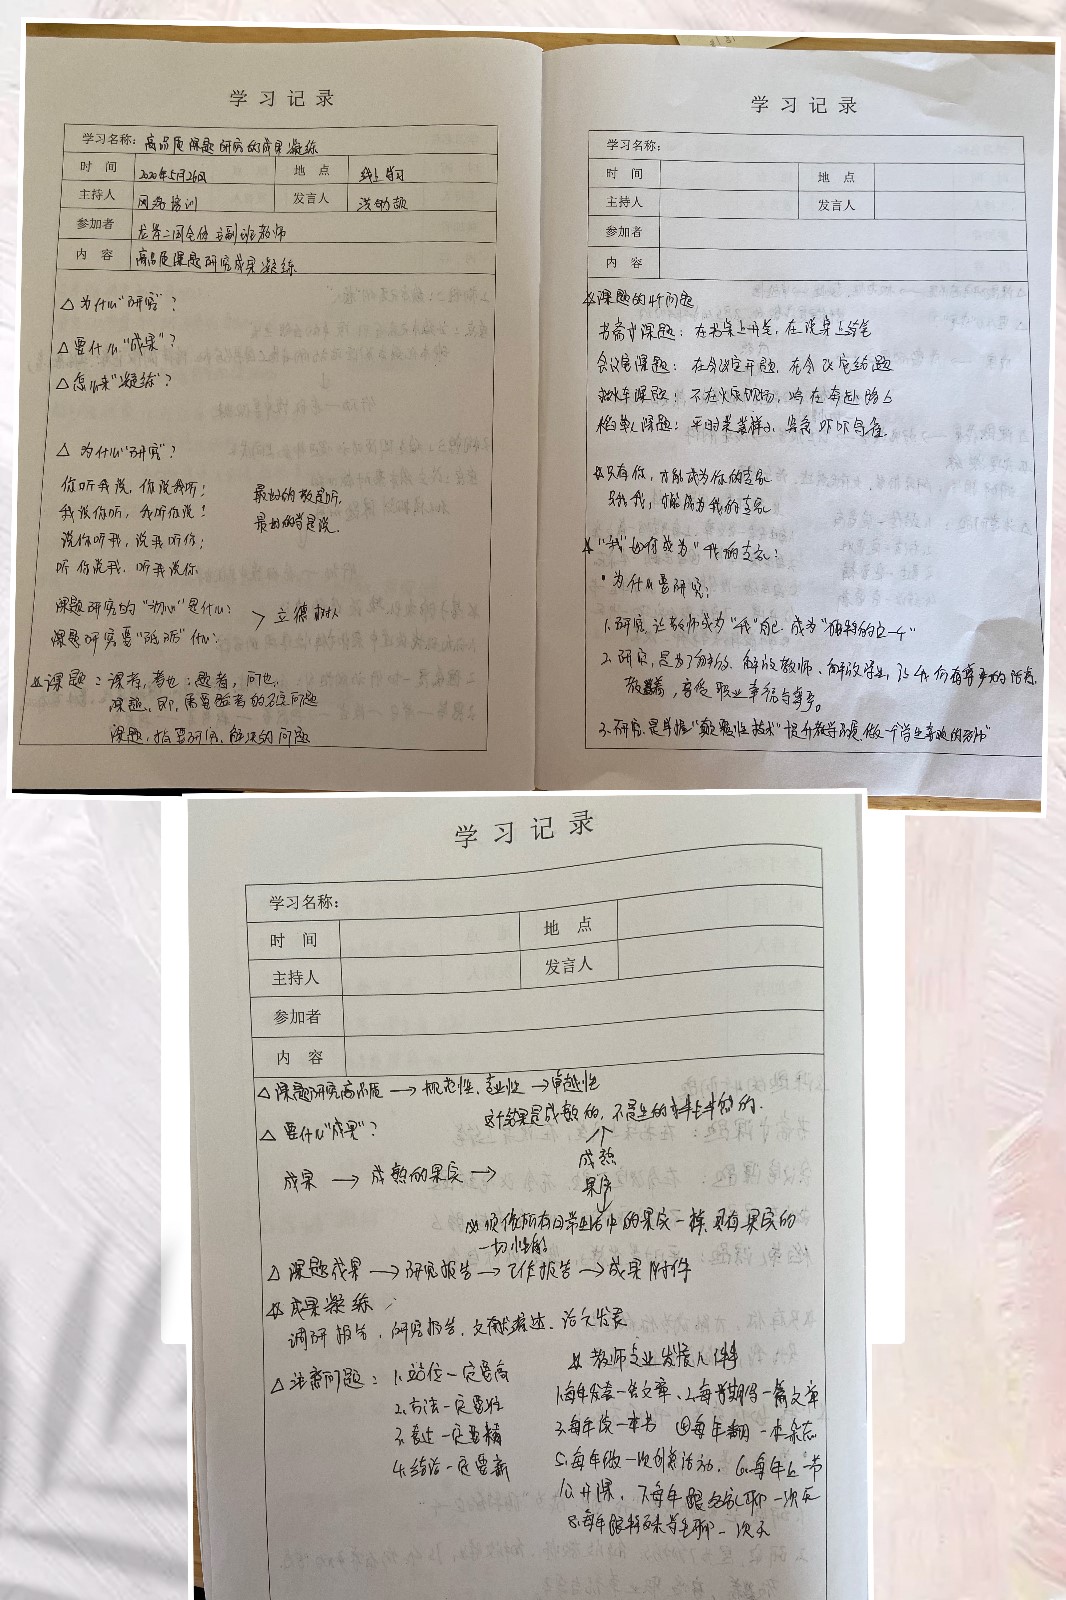 学习记录
学习名称：高品质课题研究的成果凝练
时 间 2020年5月26日 地 点 线上学习
主持人 网络培训 发言人
参加者 二园全体主副班教师
内 容 高品质课题研究成果凝练
△ 为什么“研究”？
△ 要什么“成果”？
△ 怎么来“凝练”？
△ 为什么“研究”？
你听我说，你说我听；
我说你听，我听你说！
说你听我，说我听你；
听你说我，听我说你
最好的教是听，
最好的学是说。
课题研究的“初心”是什么：
课题研究要“砥砺”什么：
> 立德树人
课题：课者，考也；题者，问也。
课题，即，需要思考的问题
课题，指要研究、解决的问题
学习记录
学习名称：
时 间 地 点
主持人 发言人
参加者
内 容
课题的4个问题
书斋式课题：在书桌上开笔，在课桌上结笔
会议室课题：在会议室开题，在会议室结题
救火车课题：不在火灾现场，总在奔赴路上
稻草人课题：平时装装样子，
只有你，才能成为你的专家
只有我，才能成为我的专家
“我”如何成为“我的专家：
·为什么要研究：
1.研究，让教师成为“我”自己，成为“独特的这一个”
2.研究，是为了解放，解放教师、解放学生，
享受职业幸福与尊严。
3.研究，是掌握
学习记录
学习名称：
时 间 地 点
主持人 发言人
参加者
内 容
△ 课题研究高品质 → 规范性、专业性 → 卓越性
△ 要什么“成果”？
这个结果是成熟的，不是生的
成熟
成果 → 成熟的果实 →
果实
必须像所有日常生活中的果实一样，具有果实的
一切性能
△ 课题成果 → 研究报告 → 工作报告 → 成果附件
成果凝练
调研报告，研究报告，文献综述，
△ 注意问题：1.站位一定要高
2.方法一定要
3.表达一定要精
4.结语一定要新
教师专业发展八件事
1.每年发表一篇文章、2.每学期写一篇文章
3.每年读一本书 ④每年翻一本杂志
5.每年做一次创新活动，6.每年上一节
公开课，7.每年跟专家聊一次天
8.每年跟特殊学生聊一次天